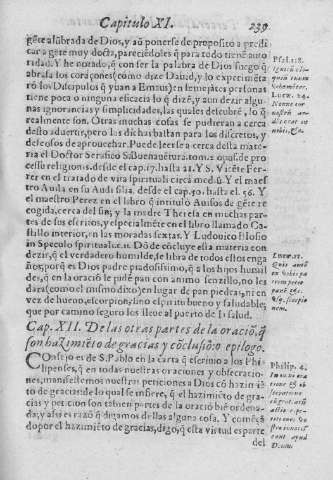 Capitulo XI.
239
gẽte alũbrada de Dios, y aũ ponerse de proposito a predi
car a gẽte muy docta, pareciẽdoles q̃ para todo tiene auto
ridad. Y he notado, q̃ con ser la palabra de Dios fuego q̃
abrasa los coraçones (como dize Dauid, y lo experimẽta
ron los dicipulos q̃ yuan a Emaus) en semejãtes personas
tiene poca o ninguna eficacia lo q̃ dizẽ, y aun dezir algu
nas ignorancias y simplicidades, las quales descubrẽ, lo q̃
realmente son. Otras muchas cosas se pudieran a cerca
desto aduertir, pero las dichas bastan para los discretos, y
desseosos de aprouechar. Puede leerse a cerca desta mate
ria el Doctor Serafico S. Buenauẽtura. tom. 2. opus. de pro
cessu religionis. desde el cap. 17. hasta 21. Y S. Vicẽte Fe-
rrer en el tratado de vita spirituali circa mediũ. Y el maes
tro Auila en su Audi filia, desde el cap. 50. hasta el 56. Y el
maestro Perez en el libro q̃ intitulo Auisos de gẽte re
cogida, cerca del fin; y la madre Theresa en muchas par-
tes de sus escritos, y especialmẽte en el libro llamado Ca-
stillo interior, en las moradas sextas. Y Ludouico Blosio
in Speculo spirituali. c. 11. Dõ de cõcluye esta materia con
dezir, q̃ el verdadero humilde, se libra de todos estos enga
ños, porq̃ es Dios padre piadosissimo, q̃ a los hijos humil
des, q̃ en la oracion le pidẽ pan con animo senzillo, no les
dara (como el mismo dixo) en lugar de pan piedras; ni en
vez de hueuo, escorpion, sino espiritu bueno y saludable;
que por camino seguro los lleue al puerto de la salud.
Cap. XII. De las otras partes de la oraciõ, q̃
son hazimiẽto de gracias y cõclusiõ: o epilogo.
COnsejo es de S. Pablo en la carta q̃ escriuio a los Phi
lipenses, q̃ en todas nuestras oraciones y obsecracio
nes, manifestemos nuestras peticiones a Dios cõ hazimiẽ
to de gracias; de lo qual se infiere, q̃ el hazimiẽto de gra-
cias y peticion son tãbien partes de la oraciõ biẽ ordena-
da, y assi es razõ q̃ digamos dellas alguna cosa. Y comẽçã
do por el hazimiẽto de gracias, digo, q̃ esta virtud es parte
del
Psal. 118.
Ignitũ elo-
quiũ tuum
vehemẽter.
Luc. 24.
Nonne cor
nostrũ ar-
dens erat in
nobis, &c.
Luc. 11.
Quis autẽ
ex vobis pa
trem petit
panẽ &c.
&c. scorpio
nem.
Philip. 4.
In omni ora
tione & ob
secratione
cũ grat. acti
actio e pe-
titiones ve
stræ innotes
cant apud
Deum.